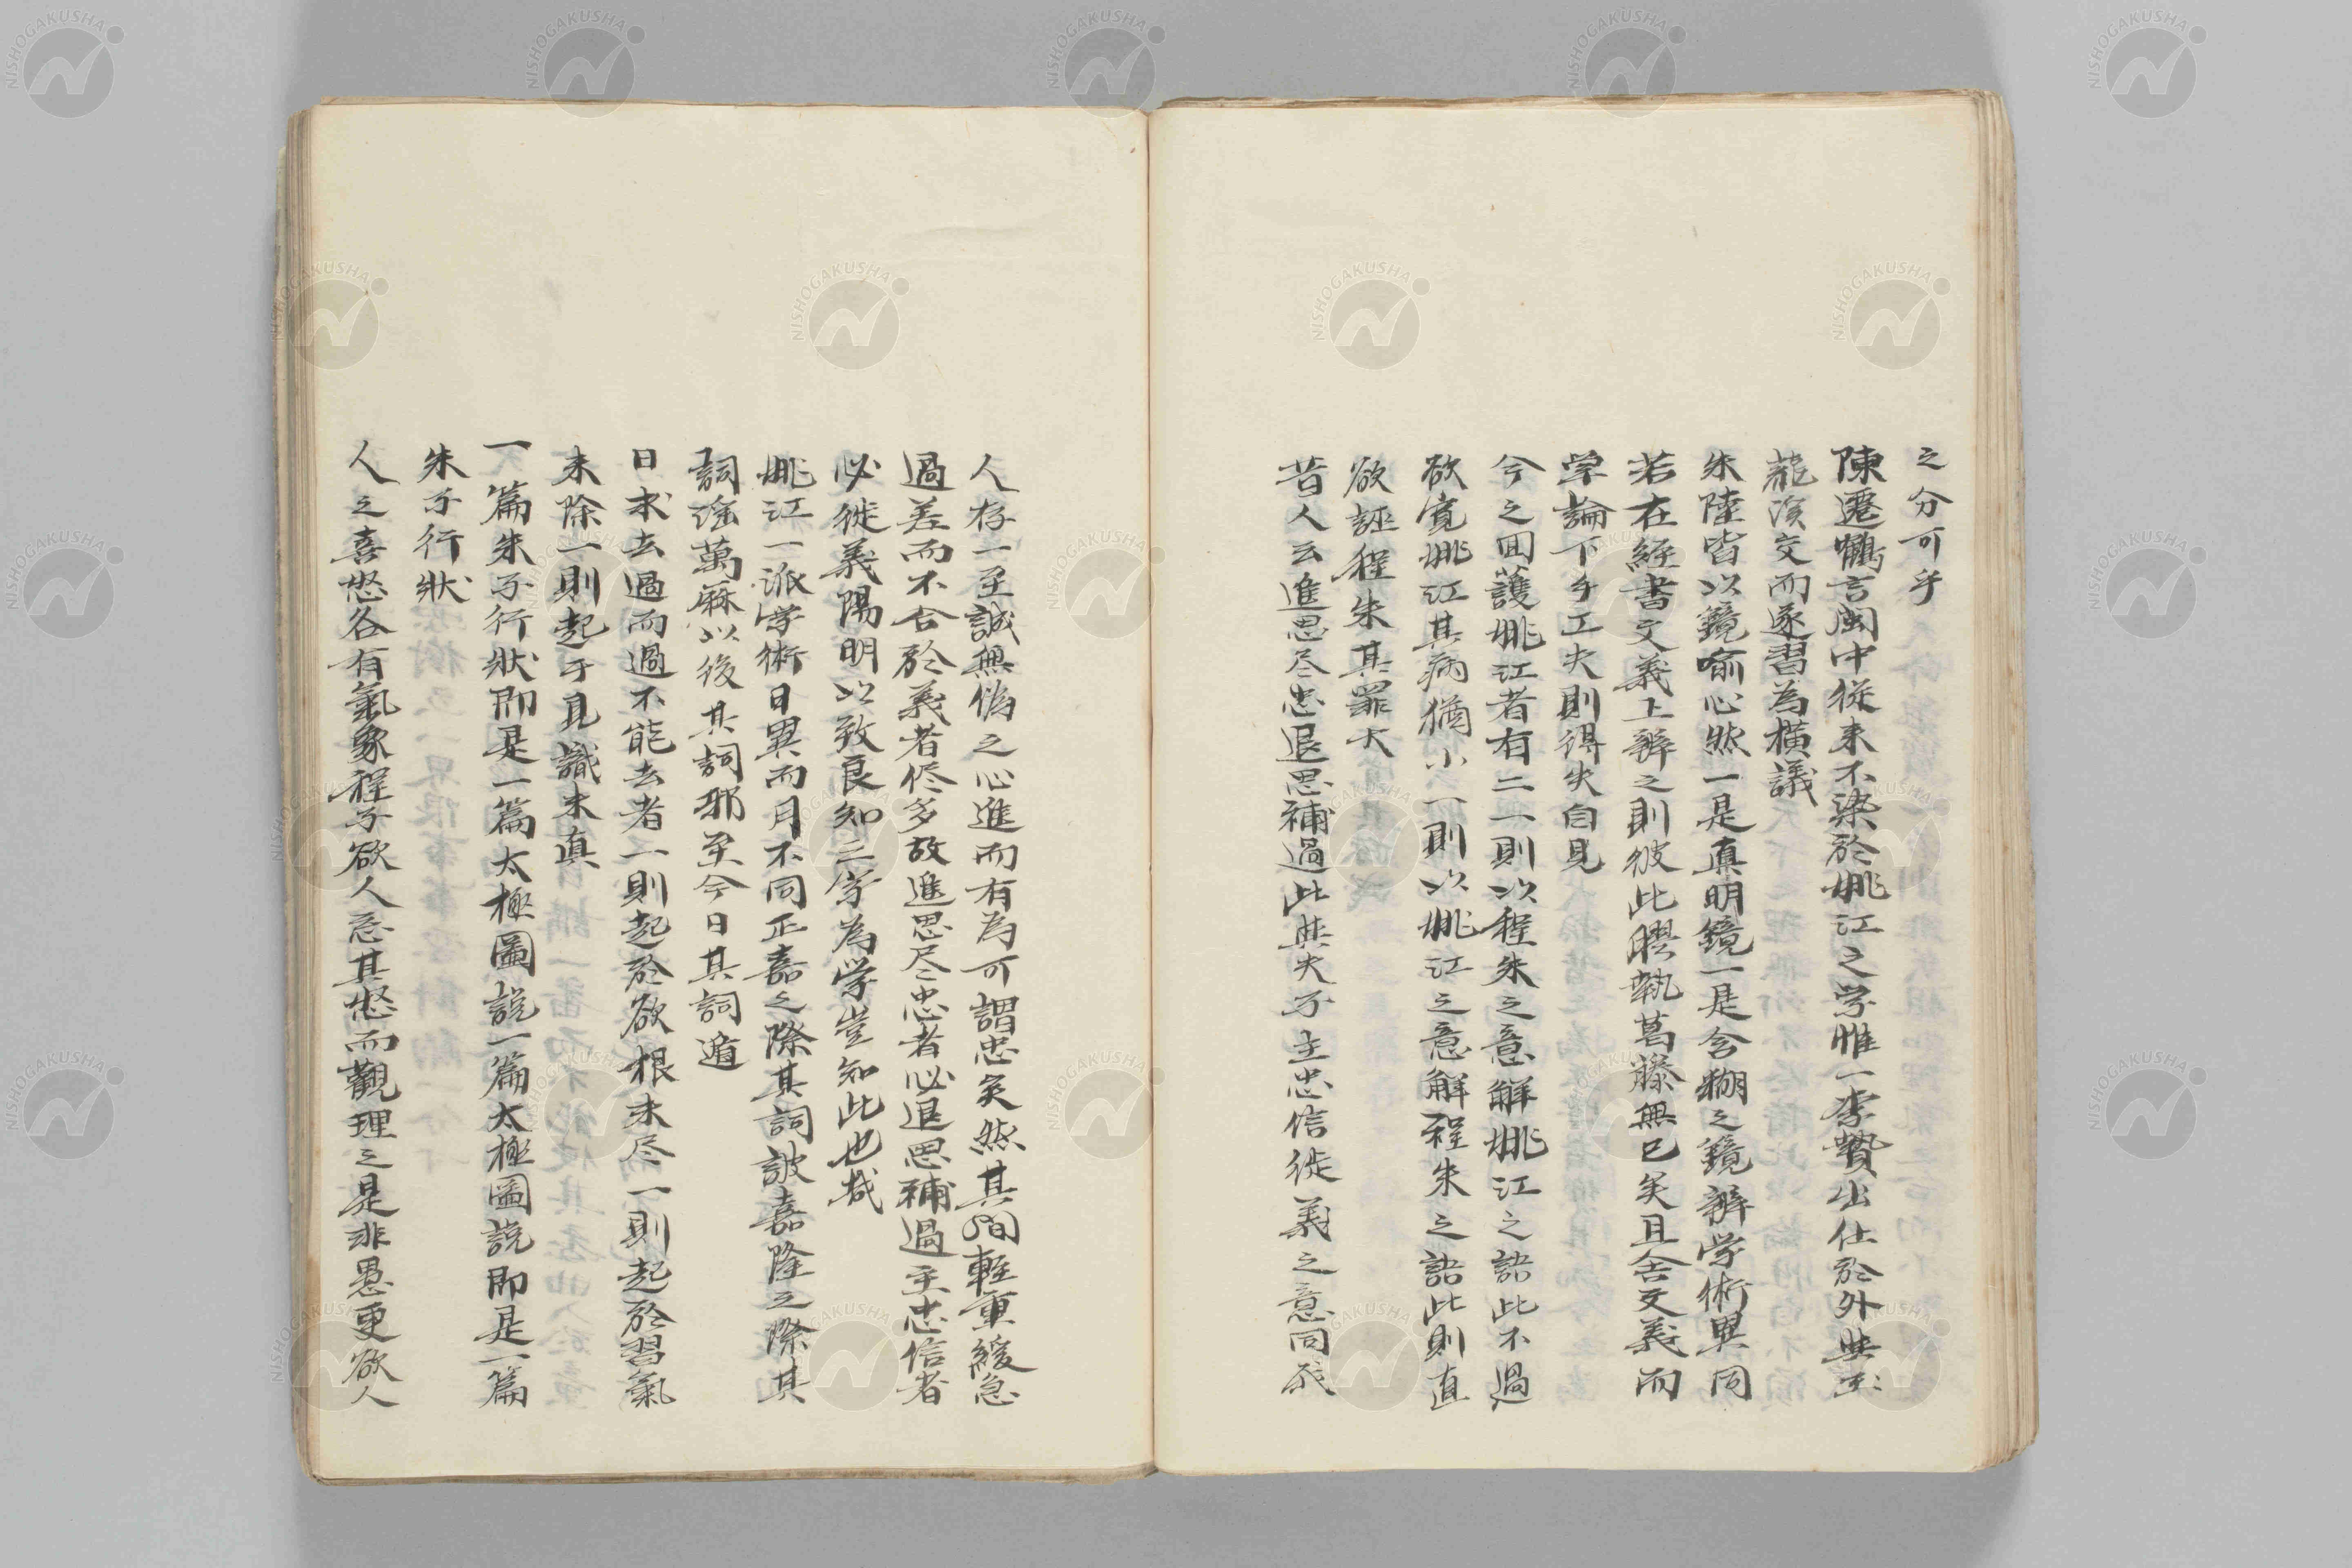 之分可乎
陳遷鶴言閩中從来不染於姚江之学惟一李贄出仕於外與王
龍溪交而遂習為横議
朱陸皆以鏡喻心然一是真明鏡一是含糊之鏡辨学術異同
若在經書文義上辨之則彼此膠執葛藤無已矣且舍文義而
学論下手工夫則得失自見
今之回護姚江者有二一則以程朱之意解姚江之語此不過
欲寛姚江其病猶小一則以姚江之意解程朱之語此則直
欲誣程朱其罪大
昔人云進思尽忠退思補過此與夫子主忠信徙義之意同蓋
人存一至誠無偽之心進而有為可謂忠矣然其間軽重緩急
過差而不合於義者侭多故進思尽忠者必退思補過主忠信者
必徙義陽明以致良知二字為学豈知此也哉
姚江一派学術日異而月不同正嘉之際其詞詖嘉隆之際其
詞淫萬麻以後其詞邪至今日其詞遁
日求去過而過不能去者一則起於欲根未尽一則起於習氣
未除一則起于見識未真
一篇朱子行状即是一篇太極圖説一篇太極圖説即是一篇
朱子行状
人之喜怒各有氣象程子欲人忘其怒而觀理之是非愚更欲人
NISHOGAKUSHA